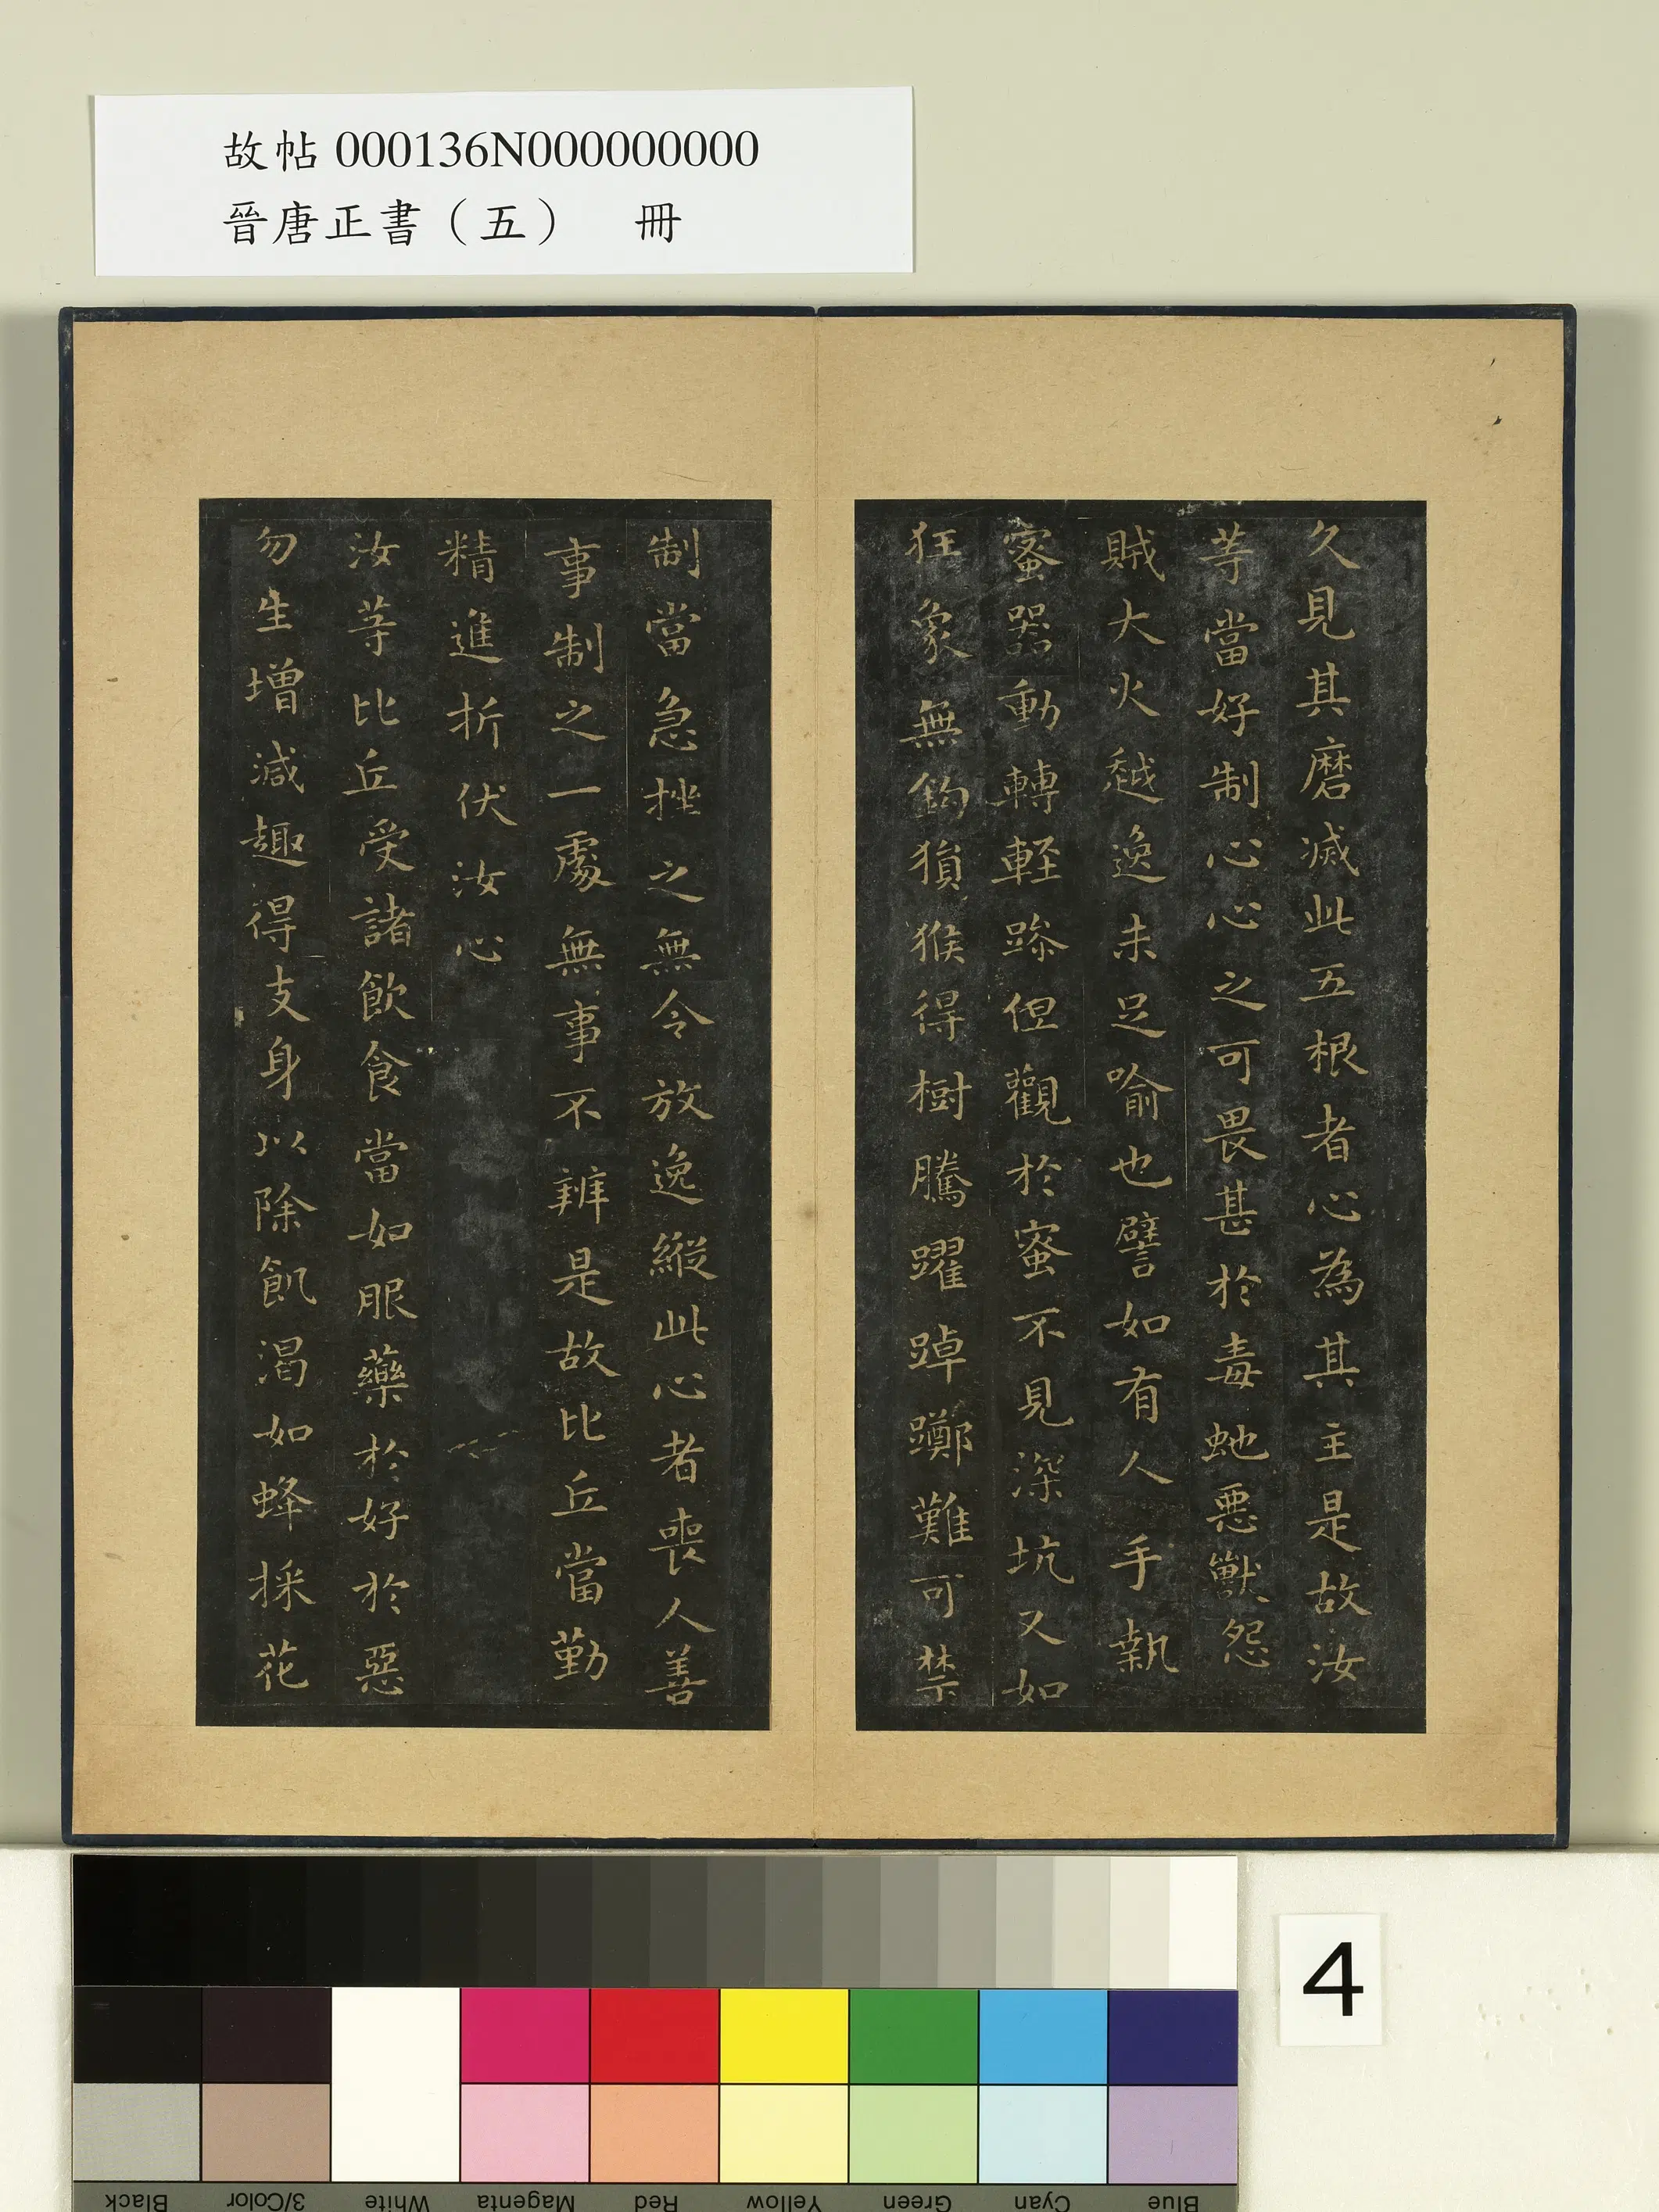 故帖 000136N000000000
晉唐正書（五）　冊
久見其磨滅此五根者心為其主是故汝
等當好制心心之可畏甚於毒虵惡獸怨
賊大火越逸未足喻也譬如有人手執
蜜器動轉軽躁但觀於蜜不見深坑又如
狂象無鈎猨猴得樹騰躍踔躑難可禁
制當急挫之無令放逸縱此心者喪人善
事制之一處無事不辨是故比丘當勤
精進折伏汝心
汝等比丘受諸飲食當如服藥於好於惡
勿生增減趣得支身以除飢渴如蜂採花
4
Black
3/Color
White
Magenta
Red
Yellow
Green
Cyan
Blue